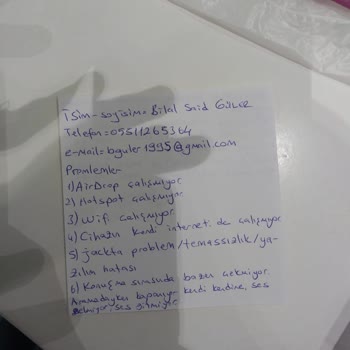 İsim-soyisim: Bilal Said GÜLER
Telefon=05511265364
e-Mail=bguler1995@gmail.com
Promlemler
1) AirDrop çalışmıyor
2) Hotspot çalışmıyor
3) Wifi çalışmıyor
4) Cihazın kendi interneti de çalışmıyor
5) Jackta problem/temassızlık/ya-
zılım hatası
6) Konuşma sırasında bazen çekmiyor.
Aramadayken kapanıyor kendi kendine, ses
gelmiyor, ses gitmiyor